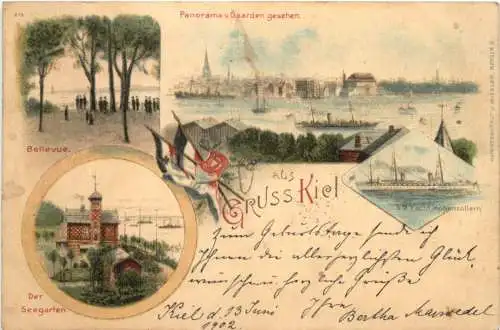 Panorama v. Gaarden gesehen.
Bellevue.
Gruss aus Kiel
S.M. Yacht Hohenzollern.
Der
Seegarten
Zum Geburtstage sende ich
Ihnen die allerherzlichsten Glück
wünsche u. herzliche Grüße
Kiel d. 13 Juni
1902.
Ihre
Bertha